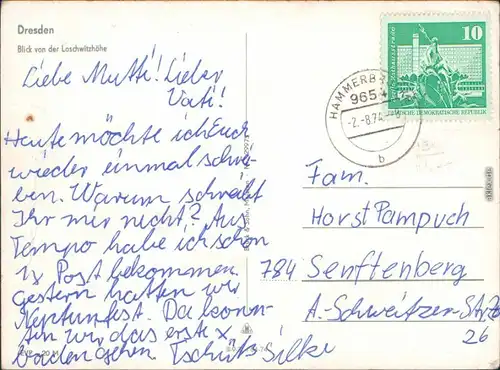 Dresden
Blick von der Loschwitzhöhe
Liebe Mutti! Lieber
Vati!
Heute möchte ich Euch
wieder einmal schrei-
ben. Warum schreibt
Ihr mir nicht? Aus
Tempo habe ich schon
1x Post bekommen.
Gestern hatten wir
Neptunfest. Da konn-
ten wir das erste x
baden gehen. Tschüß Silke
HAMMERB
965
-2.-8.74
b
10
DEUTSCHE DEMOKRATISCHE REPUBLIK
Fam.
Horst Pampuch
784 Senftenberg
A.-Schweitzer-Str.
26